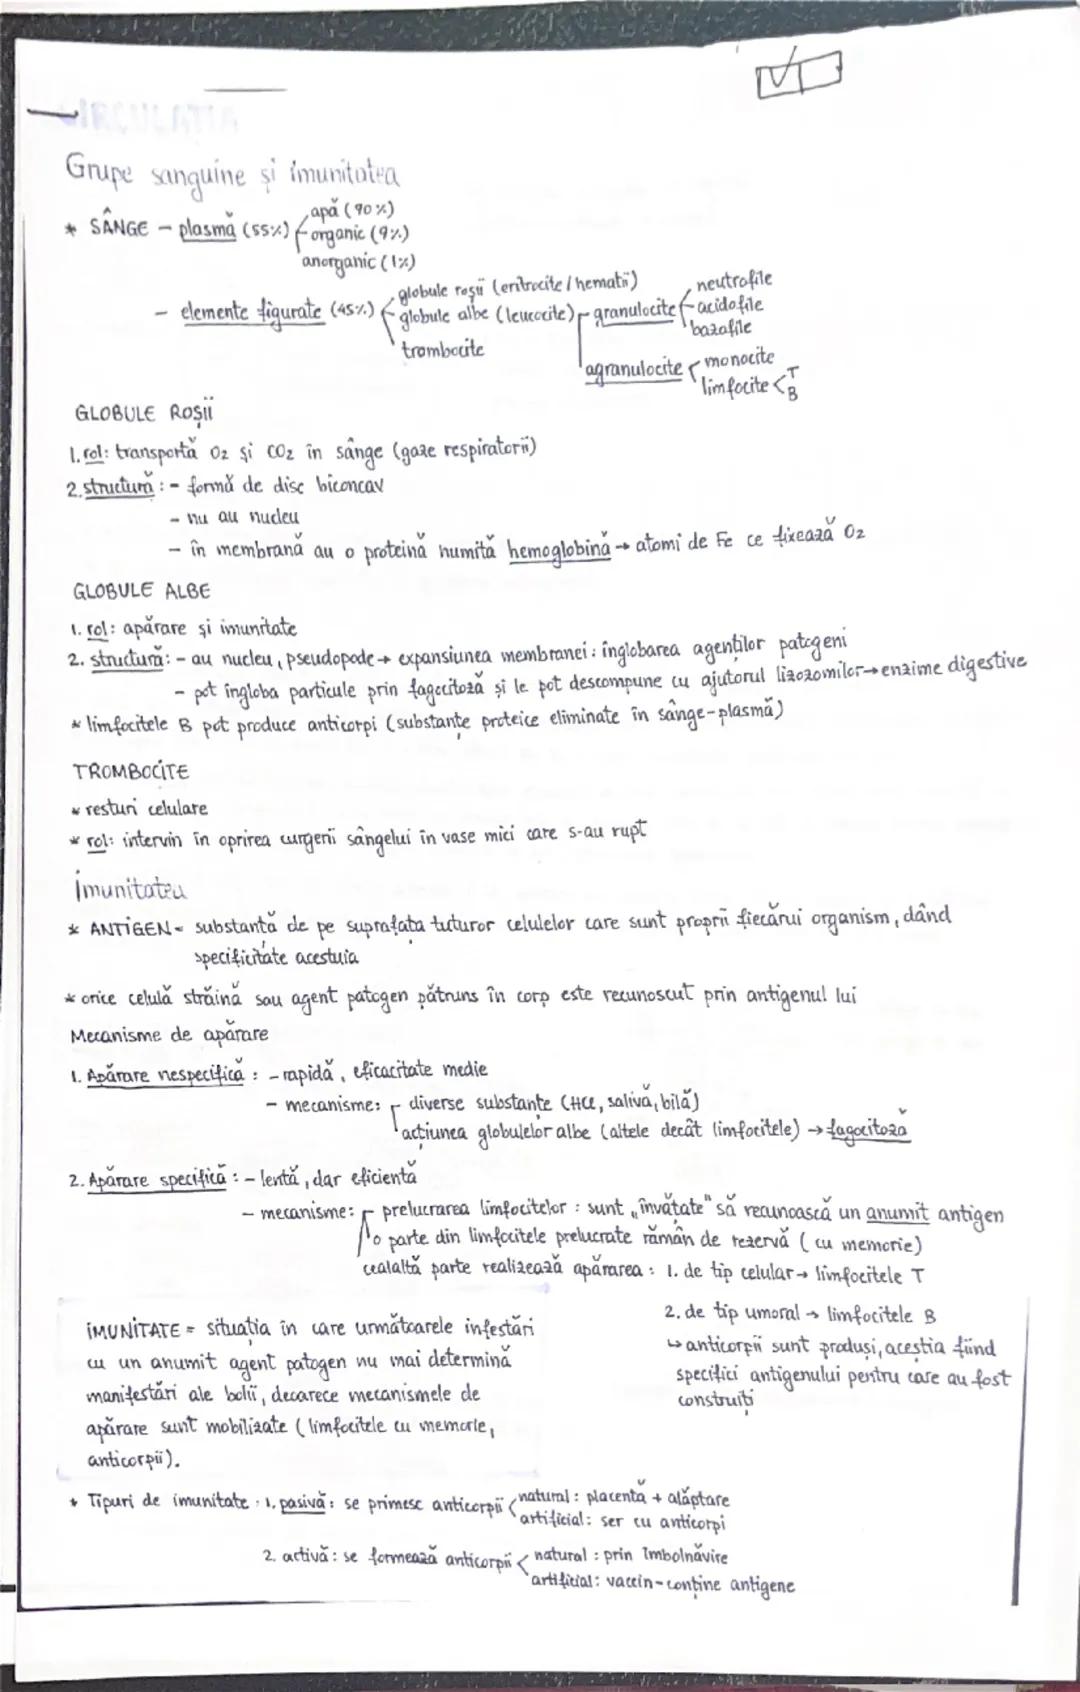 CIRCULAȚIA
Grupe sanguine și imunitatea
* SÂNGE - plasmă (55%) apă (90%)
organic (9%)
anorganic (1%)
- elemente figurate (45%) globule roșii (eritrocite / hematii)
globule albe (leucocite) granulocite neutrofile
acidofile
bazofile
trombocite
agranulocite monocite
limfocite < T
B
GLOBULE ROȘII
1. rol: transportă O2 și CO2 în sânge (gaze respiratorii)
2. structură: - formă de disc biconcav
- nu au nucleu
- în membrană au o proteină numită hemoglobină → atomi de Fe ce fixează O2
GLOBULE ALBE
1. rol: apărare și imunitate
2. structură: - au nucleu, pseudopode → expansiunea membranei: înglobarea agenților patogeni
- pot îngloba particule prin fagocitoză și le pot descompune cu ajutorul lizozomilor → enzime digestive
* limfocitele B pot produce anticorpi (substanțe proteice eliminate în sânge-plasmă)
TROMBOCITE
* resturi celulare
* rol: intervin în oprirea curgerii sângelui în vase mici care s-au rupt
Imunitatea
* ANTIGEN = substanță de pe suprafața tuturor celulelor care sunt proprii fiecărui organism, dând
specificitate acestuia
* orice celulă străină sau agent patogen pătruns în corp este recunoscut prin antigenul lui
Mecanisme de apărare
1. Apărare nespecifică: - rapidă, eficacitate medie
- mecanisme: diverse substanțe (HCl, salivă, bilă)
acțiunea globulelor albe (altele decât limfocitele) → fagocitoză
2. Apărare specifică: - lentă, dar eficientă
- mecanisme: prelucrarea limfocitelor: sunt „învățate" să recunoască un anumit antigen
o parte din limfocitele prelucrate rămân de rezervă (cu memorie)
cealaltă parte realizează apărarea: 1. de tip celular → limfocitele T
2. de tip umoral → limfocitele B
↳ anticorpii sunt produși, aceștia fiind
specifici antigenului pentru care au fost
construiți
IMUNITATE = situația în care următoarele infestări
cu un anumit agent patogen nu mai determină
manifestări ale bolii, deoarece mecanismele de
apărare sunt mobilizate (limfocitele cu memorie,
anticorpii).
* Tipuri de imunitate: 1. pasivă: se primesc anticorpii < natural: placentă + alăptare
artificial: ser cu anticorpi
2. activă: se formează anticorpii < natural: prin îmbolnăvire
artificial: vaccin-conține antigene